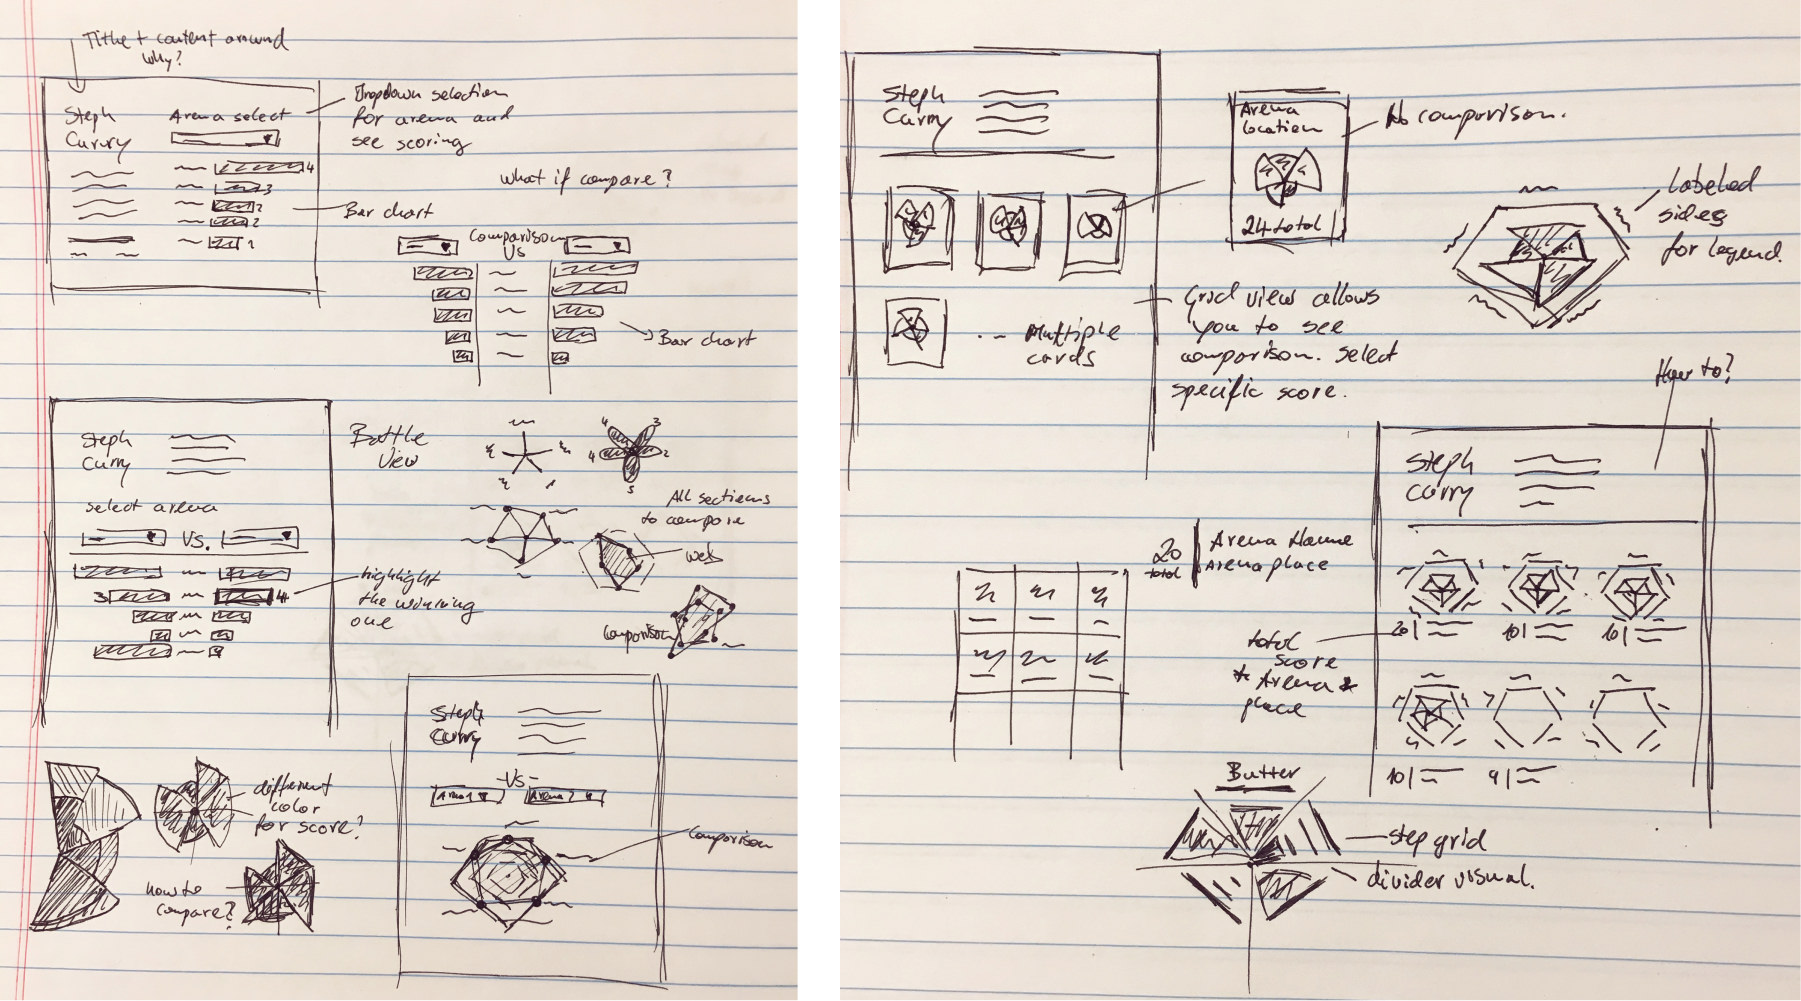 Tithe + content around
why?
Steph
Curry
Arena select
Dropdown selection
for arena and
see scoring
4
3
2
2
1
Bar chart
What if compare?
Comparison
Vs
Bar chart
Steph
Curry
Battle
View
select arena
Vs.
3
4
highlight
the winning
one
4
3
4
2
5
All sections
to compare
web
Comparison
Steph
Curry
-Vs-
Arena 1
Arena 2
Comparison
different
color
for score?
how to
compare?
Steph
Curry
Arena
location
24 total
No comparison.
Labeled
sides
for legend.
Grid view allows
you to see
comparison. select
specific score.
Multiple
cards
How to?
Steph
Curry
20
total
Arena Name
Arena place
total
score
* Arena *
place
20|
10|
10|
10|
9|
Butter
step grid
divider visual.